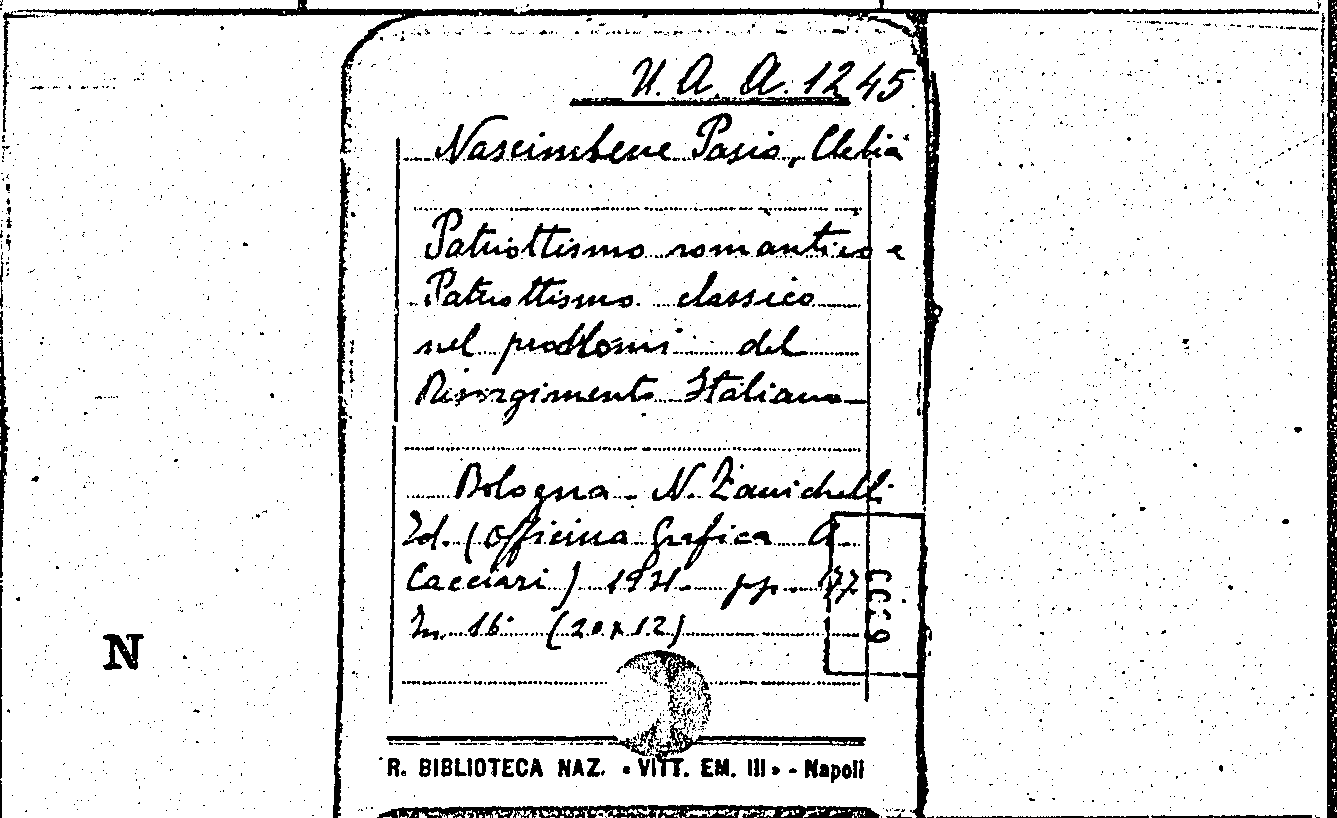 U. A. A. 1245
Nascimbene Pasio, Clelia
Patriottismo romantico e
Patriottismo classico
nel problemi del
Risorgimento Italiano
Bologna - N. Zanichelli
Ed. (Officina Grafica A.
Cacciari) 1931. pp. 177.
In 16° (20x12)
N
R. BIBLIOTECA NAZ. « VITT. EM. III » - Napoli